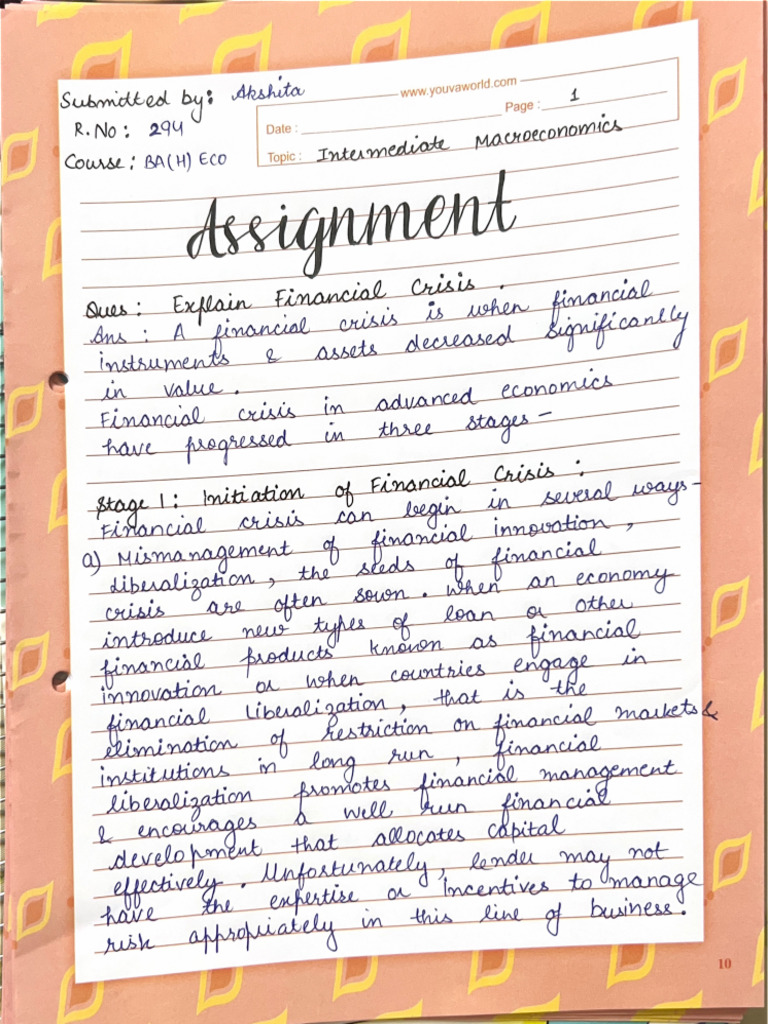 Submitted by: Akshita
R.No: 294
Course: BA(H) ECO
www.youvaworld.com
Page: 1
Date:
Topic: Intermediate Macroeconomics
Assignment
Ques: Explain Financial Crisis.
Ans: A financial crisis is when financial
instruments & assets decreased significantly
in value.
Financial crisis in advanced economics
have progressed in three stages-
Stage 1: Initiation of Financial Crisis:
Financial crisis can begin in several ways-
a) Mismanagement of financial innovation,
liberalization, the seeds of financial
crisis are often sown. When an economy
introduce new types of loan or other
financial products known as financial
innovation or when countries engage in
financial liberalization, that is the
elimination of restriction on financial markets &
institutions in long run, financial
liberalization promotes financial management
& encourages a well run financial
development that allocates capital
effectively. Unfortunately, lender may not
have the expertise or incentives to manage
risk appropriately in this line of business.
10